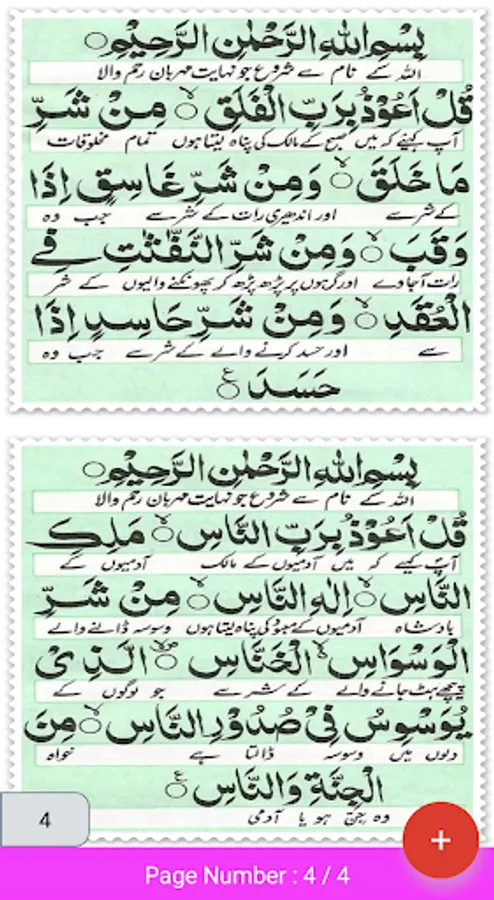 بِسْمِ اللهِ الرَّحْمٰنِ الرَّحِيْمِ
اللہ کے نام سے شروع جو نہایت مہربان رحم والا
قُلْ اَعُوْذُ بِرَبِّ الْفَلَقِ ۙ مِنْ شَرِّ
آپ کہئے کہ میں صبح کے مالک کی پناہ لیتا ہوں تمام مخلوقات
مَا خَلَقَ ۙ وَمِنْ شَرِّ غَاسِقٍ اِذَا
کے شر سے اور اندھیری رات کے شر سے جب وہ
وَقَبَ ۙ وَمِنْ شَرِّ النَّفّٰثٰتِ فِے
رات آجاوے اور گرہوں پر پڑھ پڑھ کر پھونکنے والیوں کے شر
الْعُقَدِ ۙ وَمِنْ شَرِّ حَاسِدٍ اِذَا
سے اور حسد کرنے والے کے شر سے جب وہ
حَسَدَ ع
بِسْمِ اللهِ الرَّحْمٰنِ الرَّحِيْمِ
اللہ کے نام سے شروع جو نہایت مہربان رحم والا
قُلْ اَعُوْذُ بِرَبِّ النَّاسِ ۙ مَلِكِ
آپ کہیے کہ میں آدمیوں کے مالک آدمیوں کے
النَّاسِ ۙ اِلٰهِ النَّاسِ ۙ مِنْ شَرِّ
بادشاہ آدمیوں کے معبود کی پناہ لیتا ہوں وسوسہ ڈالنے والے
الْوَسْوَاسِ ۙ الْخَنَّاسِ ۙ الَّذِىْ
پیچھے ہٹ جانے والے کے شر سے جو لوگوں کے
يُوَسْوِسُ فِىْ صُدُوْرِ النَّاسِ ۙ مِنَ
دلوں میں وسوسہ ڈالتا ہے خواہ
الْجِنَّةِ وَالنَّاسِ ع
وہ جن ہو یا آدمی
4
+
Page Number : 4 / 4